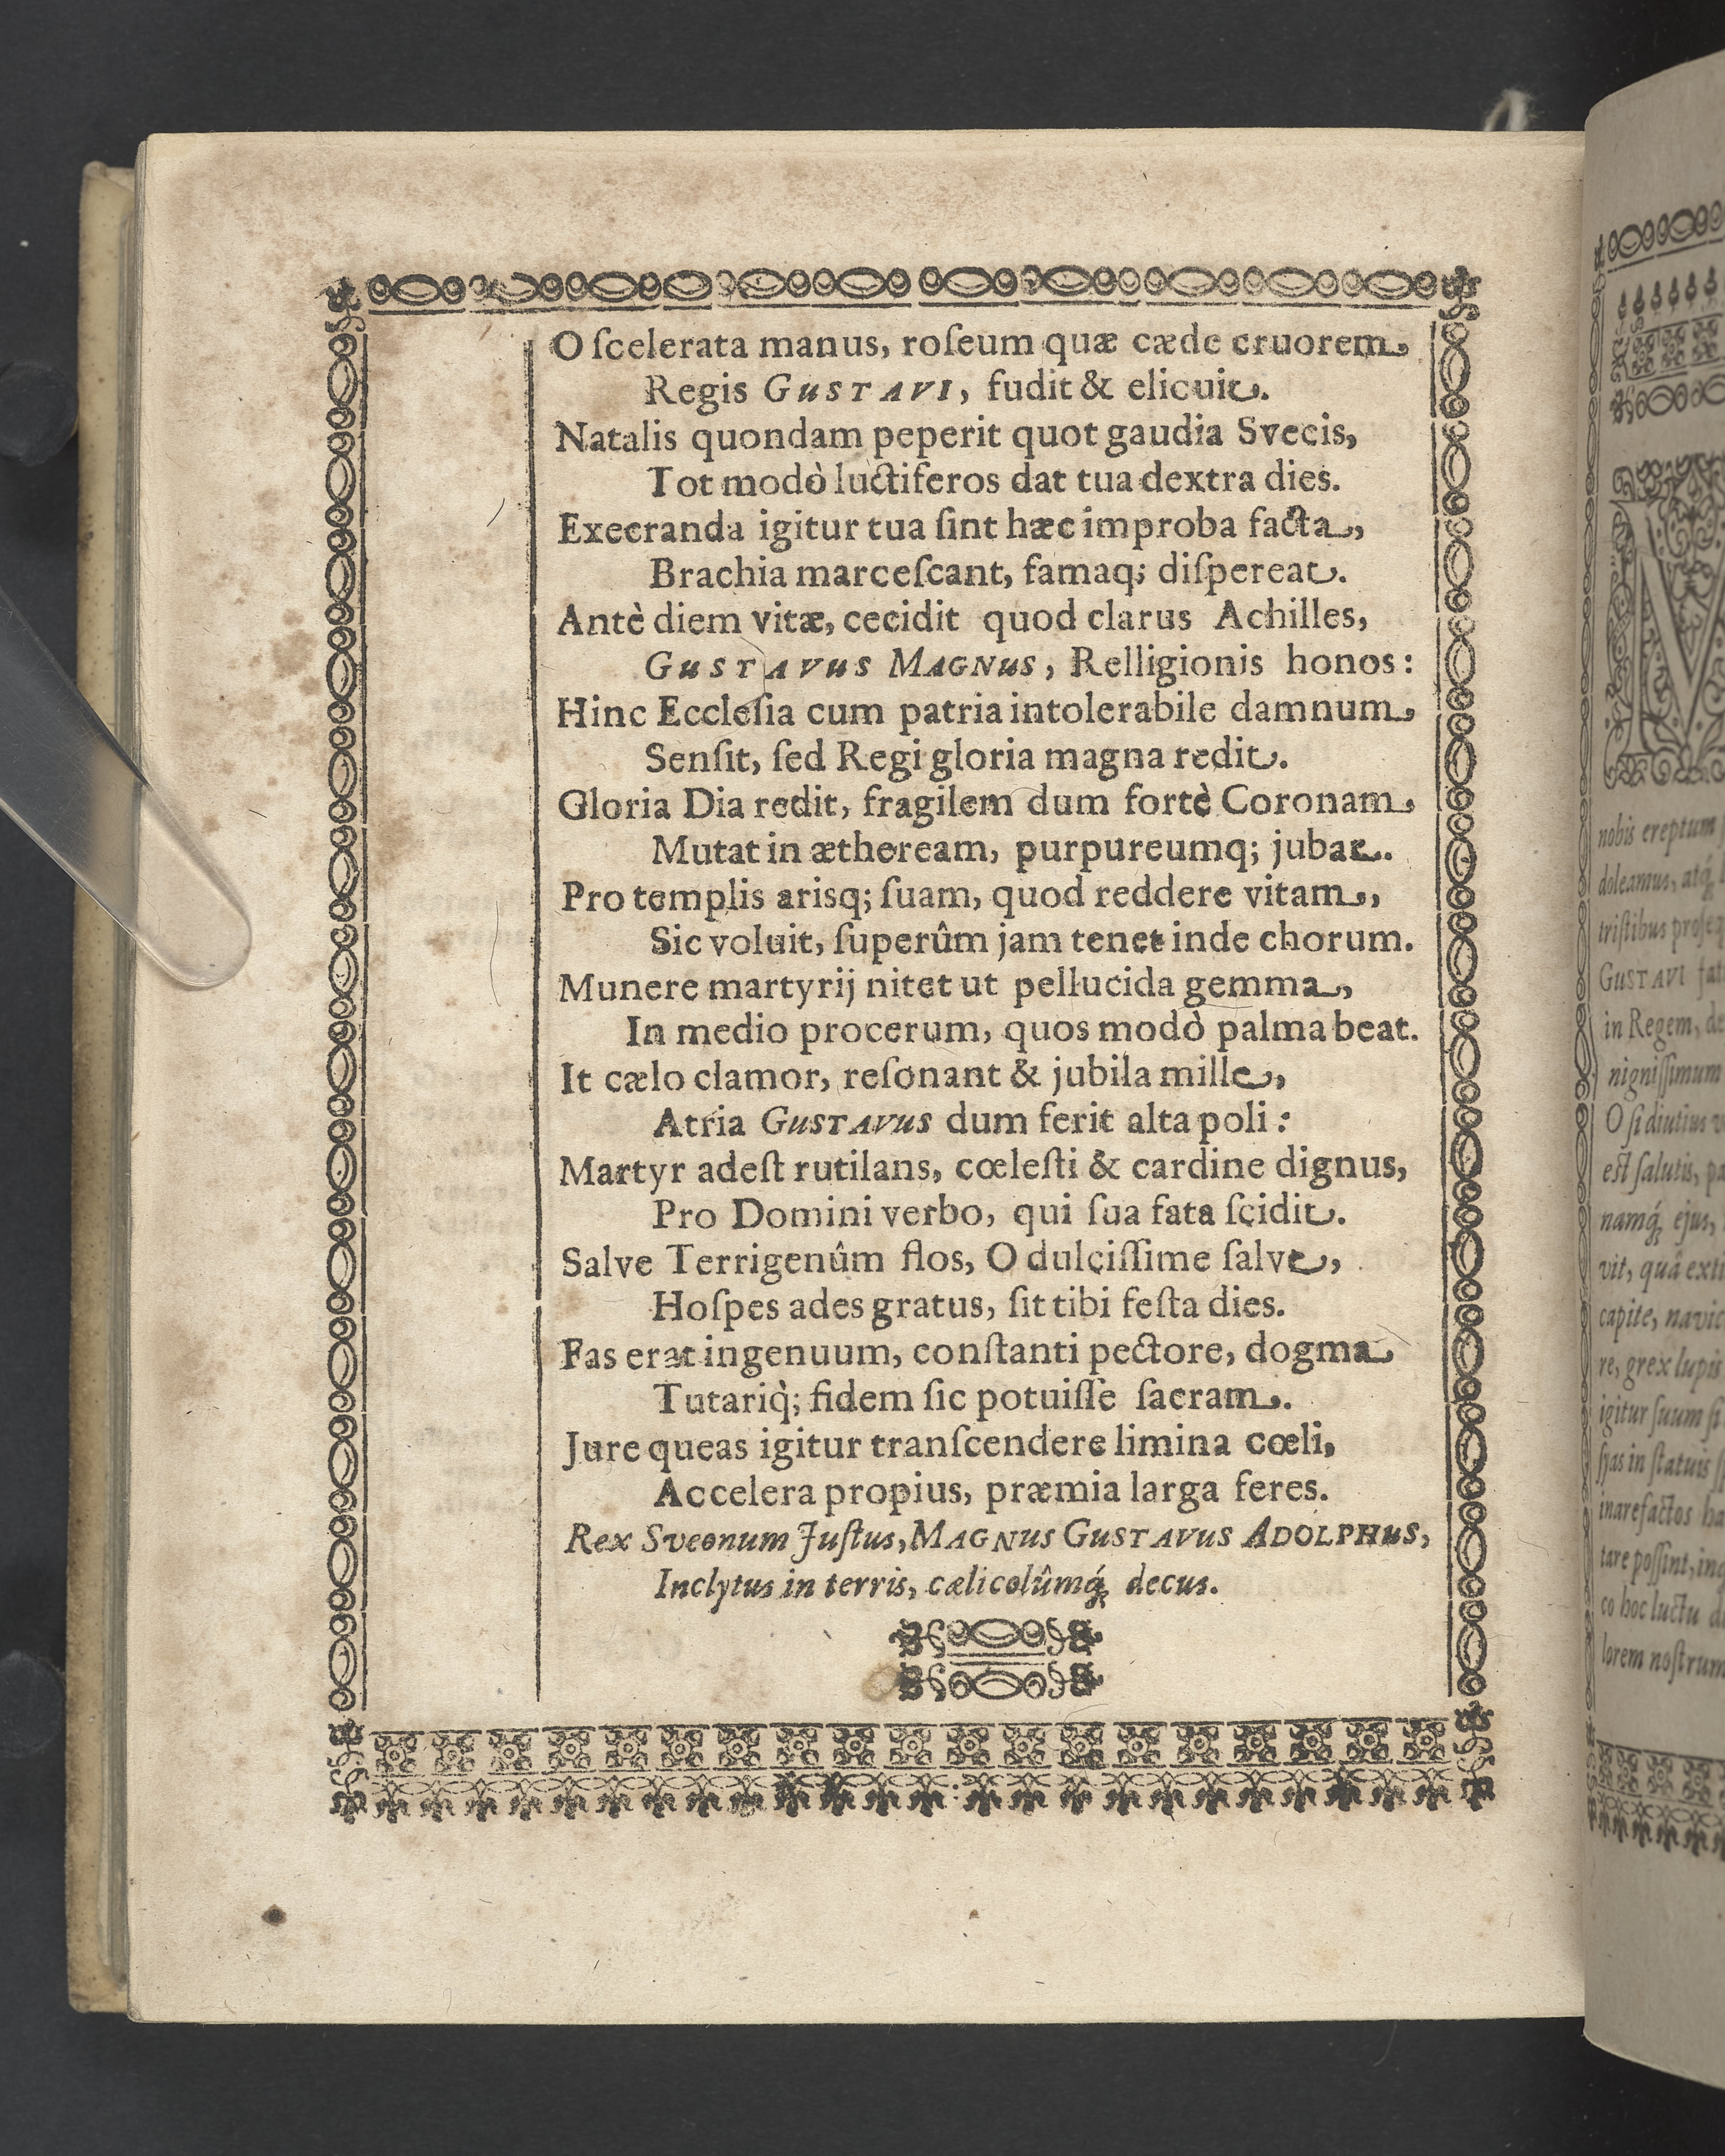 O ſcelerata manus, roſeum quæ cæde cruorem,
Regis GUSTAVI, fudit & elicuit.
Natalis quondam peperit quot gaudia Svecis,
Tot modò luctiferos dat tua dextra dies.
Execranda igitur tua ſint hæc improba facta,
Brachia marceſcant, famaq; diſpereat.
Antè diem vitæ, cecidit quod clarus Achilles,
GUSTAVUS MAGNUS, Relligionis honos:
Hinc Eccleſia cum patria intolerabile damnum,
Senſit, ſed Regi gloria magna redit.
Gloria Dia redit, fragilem dum fortè Coronam,
Mutat in ætheream, purpureumq; jubar.
Pro templis arisq; ſuam, quod reddere vitam,
Sic voluit, ſuperûm jam tenet inde chorum.
Munere martyrij nitet ut pellucida gemma,
In medio procerum, quos modò palma beat.
It cælo clamor, reſonant & jubila mille,
Atria GUSTAVUS dum ferit alta poli:
Martyr adeſt rutilans, cœleſti & cardine dignus,
Pro Domini verbo, qui ſua fata ſcidit.
Salve Terrigenûm flos, O dulciſſime ſalve,
Hoſpes ades gratus, ſit tibi feſta dies.
Fas erat ingenuum, conſtanti pectore, dogma
Tutariq̀; fidem ſic potuiſſe ſacram.
Jure queas igitur tranſcendere limina cœli,
Accelera propius, præmia larga feres.
Rex Sveonum Juſtus, MAGNUS GUSTAVUS ADOLPHUS,
Inclytus in terris, cælicolûmq́; decus.
nobis ereptum
doleamus, atq́;
triſtibus proſeq
GUSTAVI fat
in Regem, de
nigniſſimum
O ſi diutius v
eſt ſalutis, pa
namq́; ejus,
vit, quâ exti
capite, navic
re, grex lupis
igitur ſuum ſi
ſyas in ſtatuis ſp
inarefactos ha
tare poſſint, inq
co hoc luctu d
lorem noſtrum